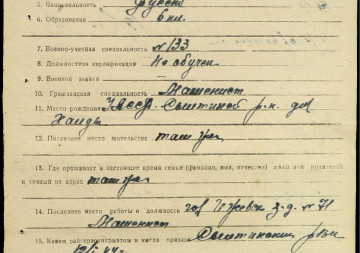 5. Национальность русск
6. Образование 6 кл.
7. Военно-учетная специальность № 133
8. Должностная квалификация Не обучен
9. Военное звание
10. Гражданская специальность Машенист
11. Место рождения р-н. д.
12. Последнее место жительства там же
13. Где проживает в настоящее время семья (фамилия, имя, отчество) жены или родителей
и точный их адрес там же
14. Последнее место работы и должность гор Ижевск з-д. № 71
Машенист
15. Каким райгорвоенкоматом и когда призван